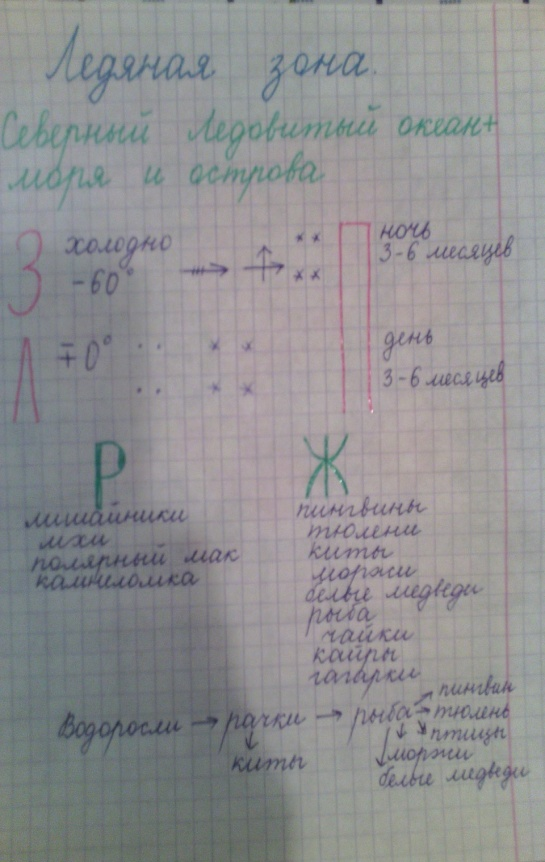 Ледяная зона.
Северный Ледовитый океан +
моря и острова
З холодно
-60°
П ночь
3-6 месяцев
Л ∓0°
день
3-6 месяцев
Р
лишайники
мхи
полярный мак
камнеломка
Ж
пингвины
тюлени
киты
моржи
белые медведи
рыба
чайки
кайры
гагарки
Водоросли → рачки → рыба → пингвин
→ тюлень
птицы
моржи
белые медведи
киты